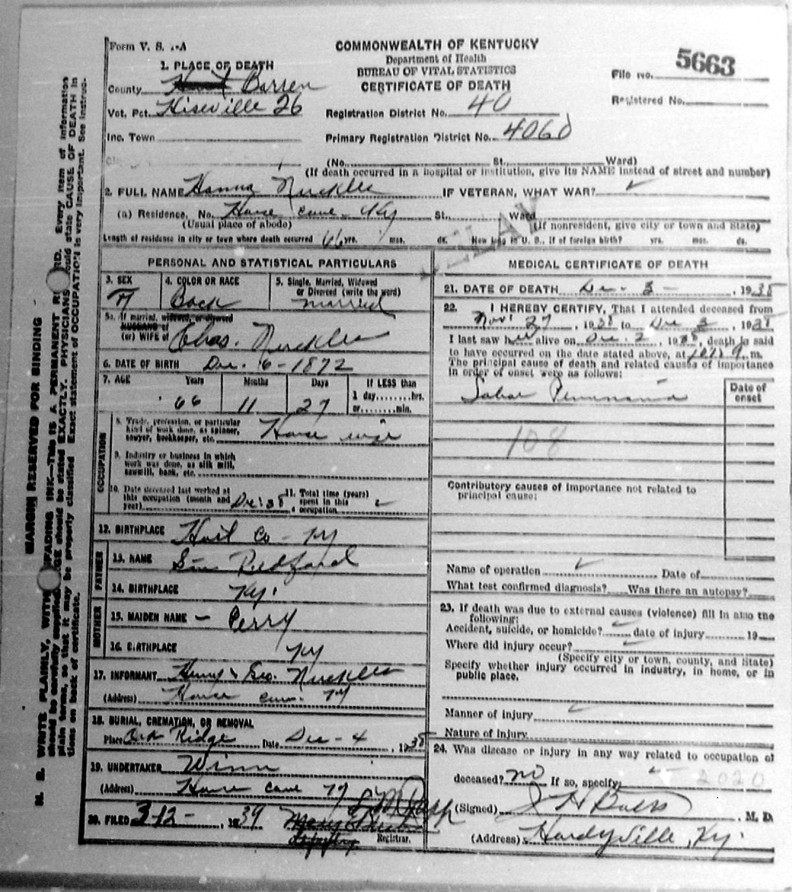 Form V. S. 1-A
COMMONWEALTH OF KENTUCKY
Department of Health
BUREAU OF VITAL STATISTICS
CERTIFICATE OF DEATH
File No. 5663
Registered No.
1. PLACE OF DEATH
County Hart Barren
Vot. Pct. Hiseville 26
Registration District No. 40
Inc. Town
Primary Registration District No. 4060
(No. St. Ward)
(If death occurred in a hospital or institution, give its NAME instead of street and number)
2. FULL NAME Hanna Nuckles IF VETERAN, WHAT WAR?
(a) Residence, No. Horse cave Ky St. Ward
(Usual place of abode) (If nonresident, give city or town and State)
Length of residence in city or town where death occurred 66 yrs. mos. ds. How long in U. S., if of foreign birth? yrs. mos. ds.
DELAY
PERSONAL AND STATISTICAL PARTICULARS
3. SEX
F
4. COLOR OR RACE
5. Single, Married, Widowed
or Divorced (write the word)
married
5a. If married, widowed, or divorced
HUSBAND of
(or) WIFE of Chas. Nuckles
6. DATE OF BIRTH Dec. 6 - 1872
7. AGE Years Months Days If LESS than
66 11 27 1 day,.....hrs.
or.....min.
OCCUPATION
8. Trade, profession, or particular
kind of work done, as spinner,
sawyer, bookkeeper, etc. House wife
9. Industry or business in which
work was done, as silk mill,
sawmill, bank, etc.
10. Date deceased last worked at
this occupation (month and
year) Dec. 38
11. Total time (years)
spent in this
occupation
12. BIRTHPLACE Hart Co - Ky
FATHER
13. NAME Sim Redford
14. BIRTHPLACE Ky.
MOTHER
15. MAIDEN NAME - Perry
16. BIRTHPLACE Ky
17. INFORMANT Nuckles
(Address) Horse cave Ky
18. BURIAL, CREMATION, OR REMOVAL
Place Ridge Date Dec - 4, 1938
19. UNDERTAKER Winn
(Address) Horse cave Ky
20. FILED 3-12-, 1939
Registrar.
MEDICAL CERTIFICATE OF DEATH
21. DATE OF DEATH Dec - 3 -, 1938
22. I HEREBY CERTIFY, That I attended deceased from
Nov. 27, 1938 to Dec 3, 1938
I last saw her alive on Dec. 2, 1938, death is said
to have occurred on the date stated above, at m.
The principal cause of death and related causes of importance
in order of onset were as follows:
Date of
onset
Lobar Pneumonia
108
Contributory causes of importance not related to
principal cause:
Name of operation Date of
What test confirmed diagnosis? Was there an autopsy?
23. If death was due to external causes (violence) fill in also the
following:
Accident, suicide, or homicide? date of injury 19
Where did injury occur?
(Specify city or town, county, and State)
Specify whether injury occurred in industry, in home, or in
public place.
Manner of injury
Nature of injury
24. Was disease or injury in any way related to occupation of
deceased? no If so, specify 2020
(Signed) M. D.
(Address) Hardyville, Ky.
MARGIN RESERVED FOR BINDING